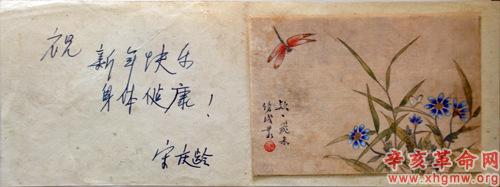 祝
新年快乐
身体健康！
宋庆龄
辛亥革命网
www.xhgmw.org